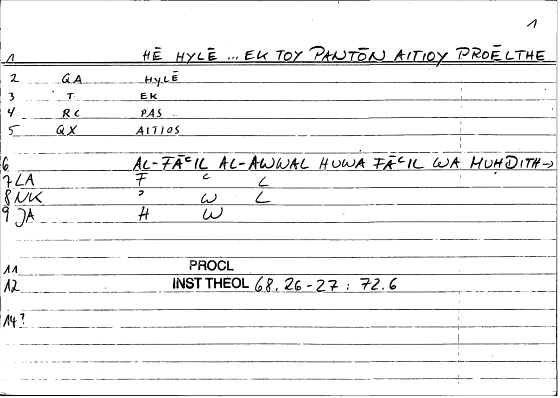 1
1 HĒ HYLĒ ... EK TOY PANTŌN AITIOY PROĒLTHE
2 QA HYLĒ
3 T EK
4 RC PAS
5 QX AITIOS
6 AL-FĀᶜIL AL-AWWAL HUWA FĀᶜIL WA MUHDITH→
7 LA F ᶜ L
8 NK ʾ W L
9 JA H W
11 PROCL
12 INST THEOL 68.26-27 : 72.6
14?